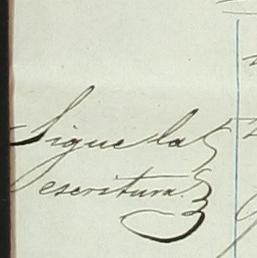 Sigue la
escritura.